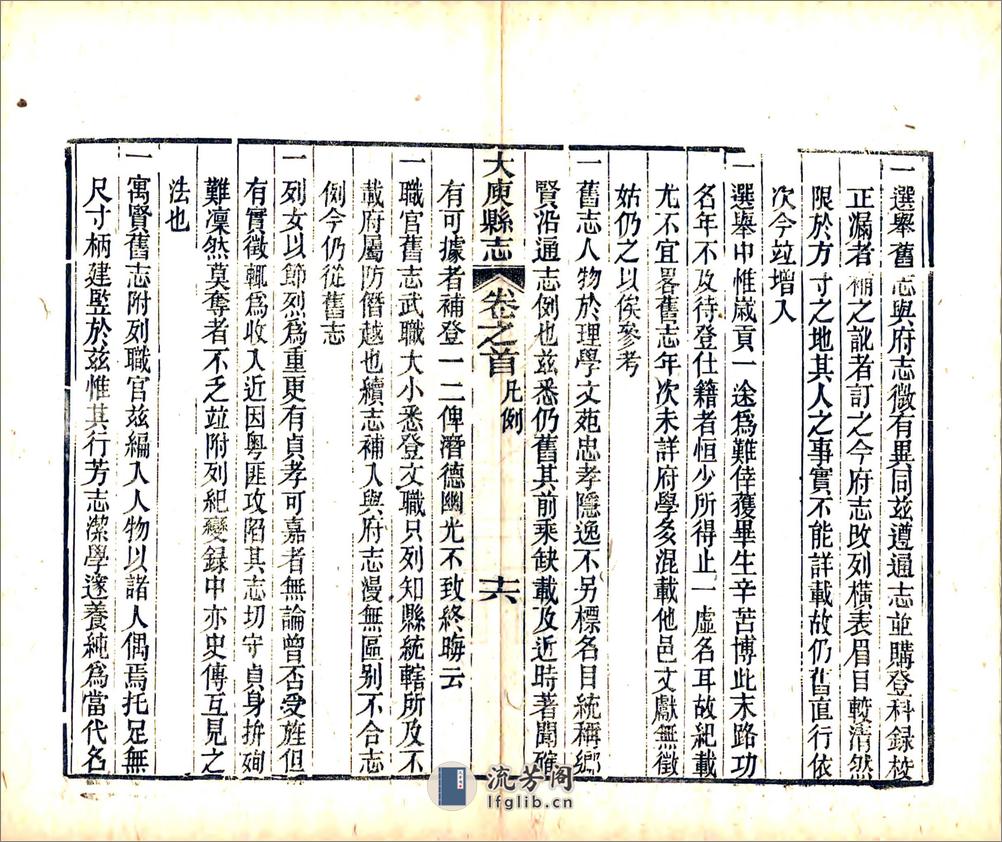 一選舉舊志與府志微有異同茲遵通志並購登科録校
正漏者補之訛者訂之今府志改列橫表眉目較清然
限於方寸之地其人之事實不能詳載故仍舊直行依
次今竝增入
一選舉中惟歲貢一途爲難倖獲畢生辛苦博此末路功
名年不及待登仕籍者恒少所得止一虛名耳故紀載
尤不宜畧舊志年次未詳府學多混載他邑文獻無徵
姑仍之以俟參考
一舊志人物於理學文苑忠孝隱逸不另標名目統稱鄉
賢沿通志例也茲悉仍舊其前乘缺載及近時著聞確
大庾縣志 卷之首 凡例 十六
有可據者補登一二俾潛德幽光不致終晦云
一職官舊志武職大小悉登文職只列知縣統轄所及不
載府屬防僭越也續志補入與府志漫無區别不合志
例今仍從舊志
一列女以節烈爲重更有貞孝可嘉者無論曾否受旌但
有實徵輒爲收入近因粵匪攻陷其志切守貞身拚殉
難凜然莫奪者不乏竝附列紀變録中亦史傳互見之
法也
一寓賢舊志附列職官茲編入人物以諸人偶焉托足無
尺寸柄建監於茲惟其行芳志潔學邃養純爲當代名
流芳阁
lfglib.cn